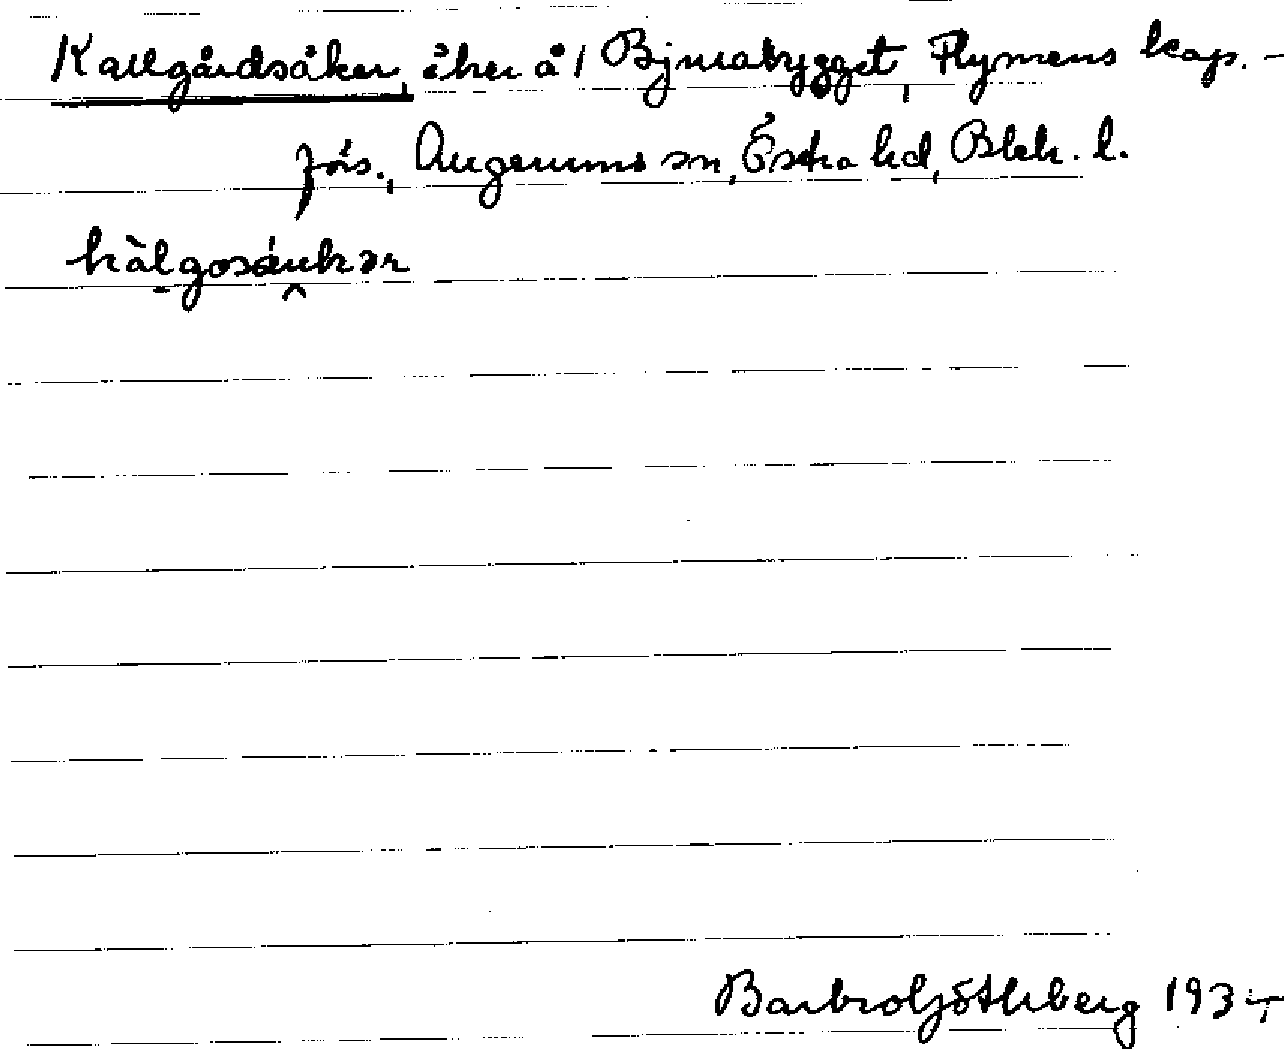 Kallgårdsåker, åker å 1 Björnabygget, Flymens kap.-
förs., Augerums sn, Östra hd, Blek. l.
Barbro Göthberg 193